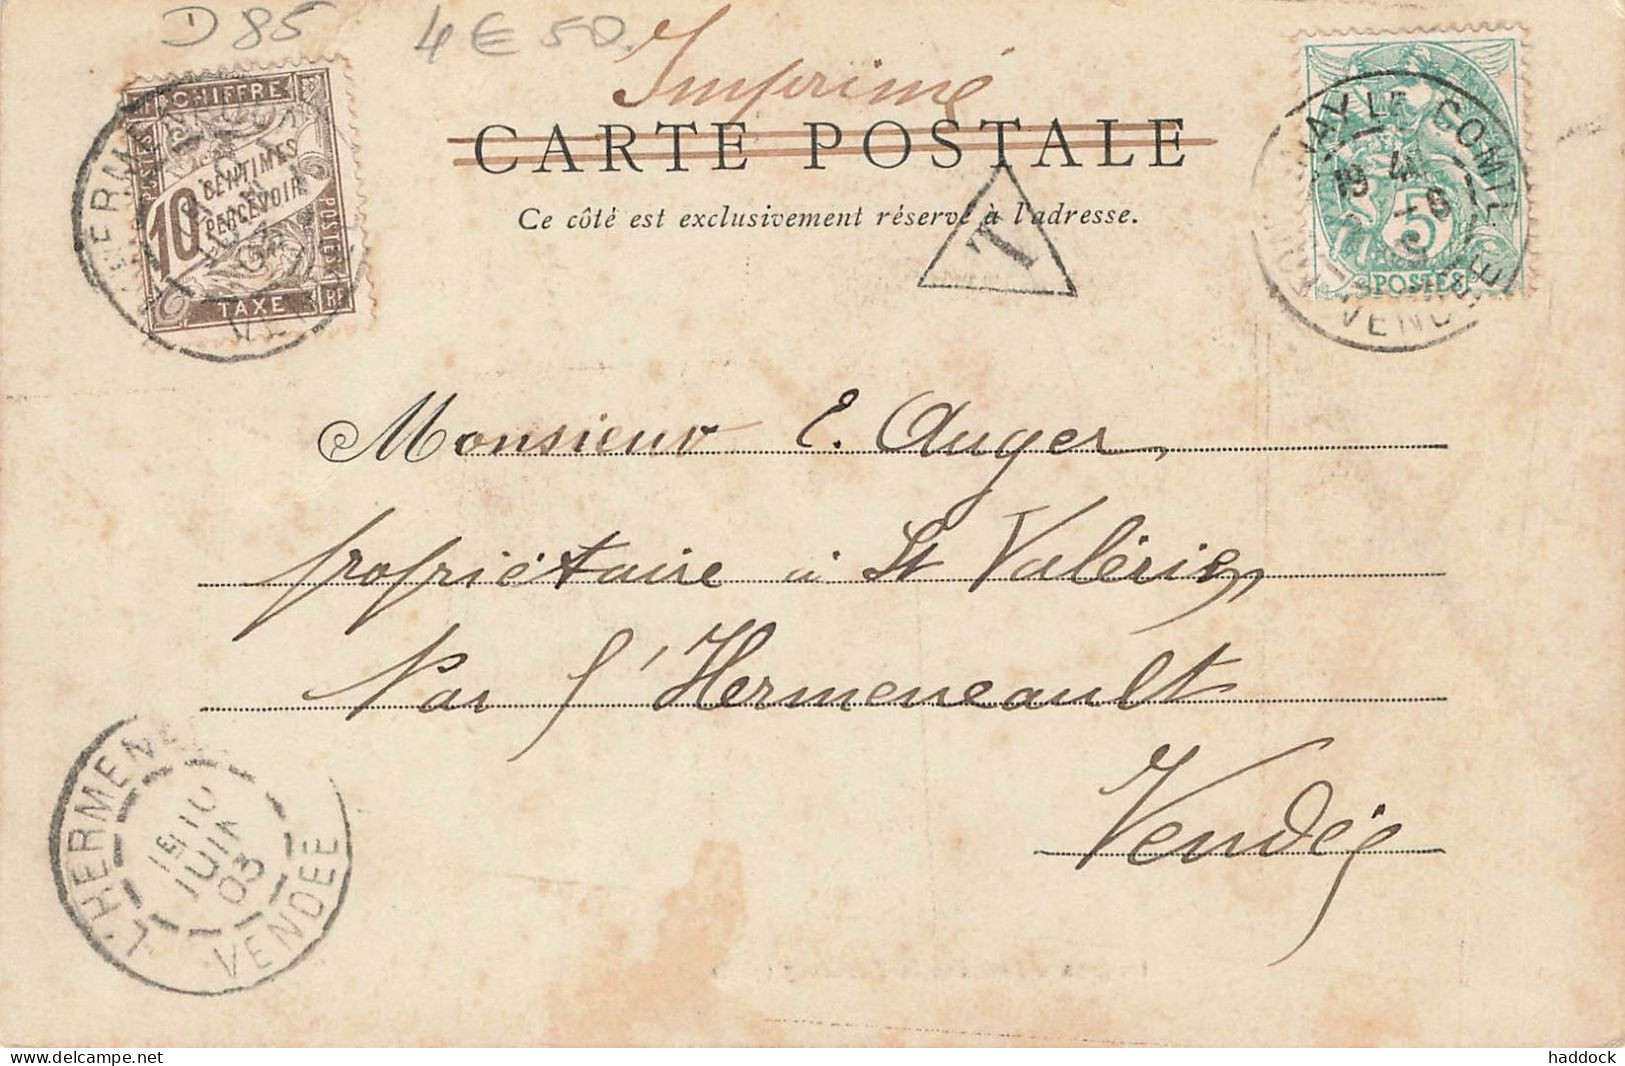 D 85
4€50.
Imprimé
CARTE POSTALE
Ce côté est exclusivement réservé à l'adresse.
CHIFFRE
POSTES
10
CENTIMES
PERCEVOIR
POSTES
TAXE
RF
T
LE COMTE
VENDÉE
19
5
POSTES
Monsieur E. Auger,
propriétaire à St Valérien
Par l'Hermeneault
Vendée
L'HERMEN
10
JUIN
03
VENDEE
www.delcampe.net
haddock